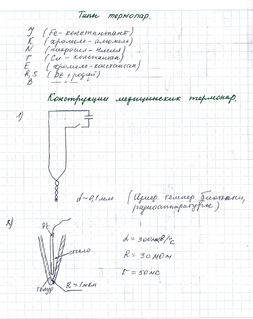 Типы термопар.
J (Fe-константант)
K (хромель-алюмель)
N (никросил-нисил)
T (Cu-константан)
E (хромель-константан)
R,S (Pt-родий)
B — " —
Конструкции медицинских термопар.
1)
d~0,1мм (Измер. темпер. биоткани,
радиоаппаратуры)
2)
Pt
стекло
α = 300мкВ/°С
R = 30 МОм
τ = 50мс
R=1мкм